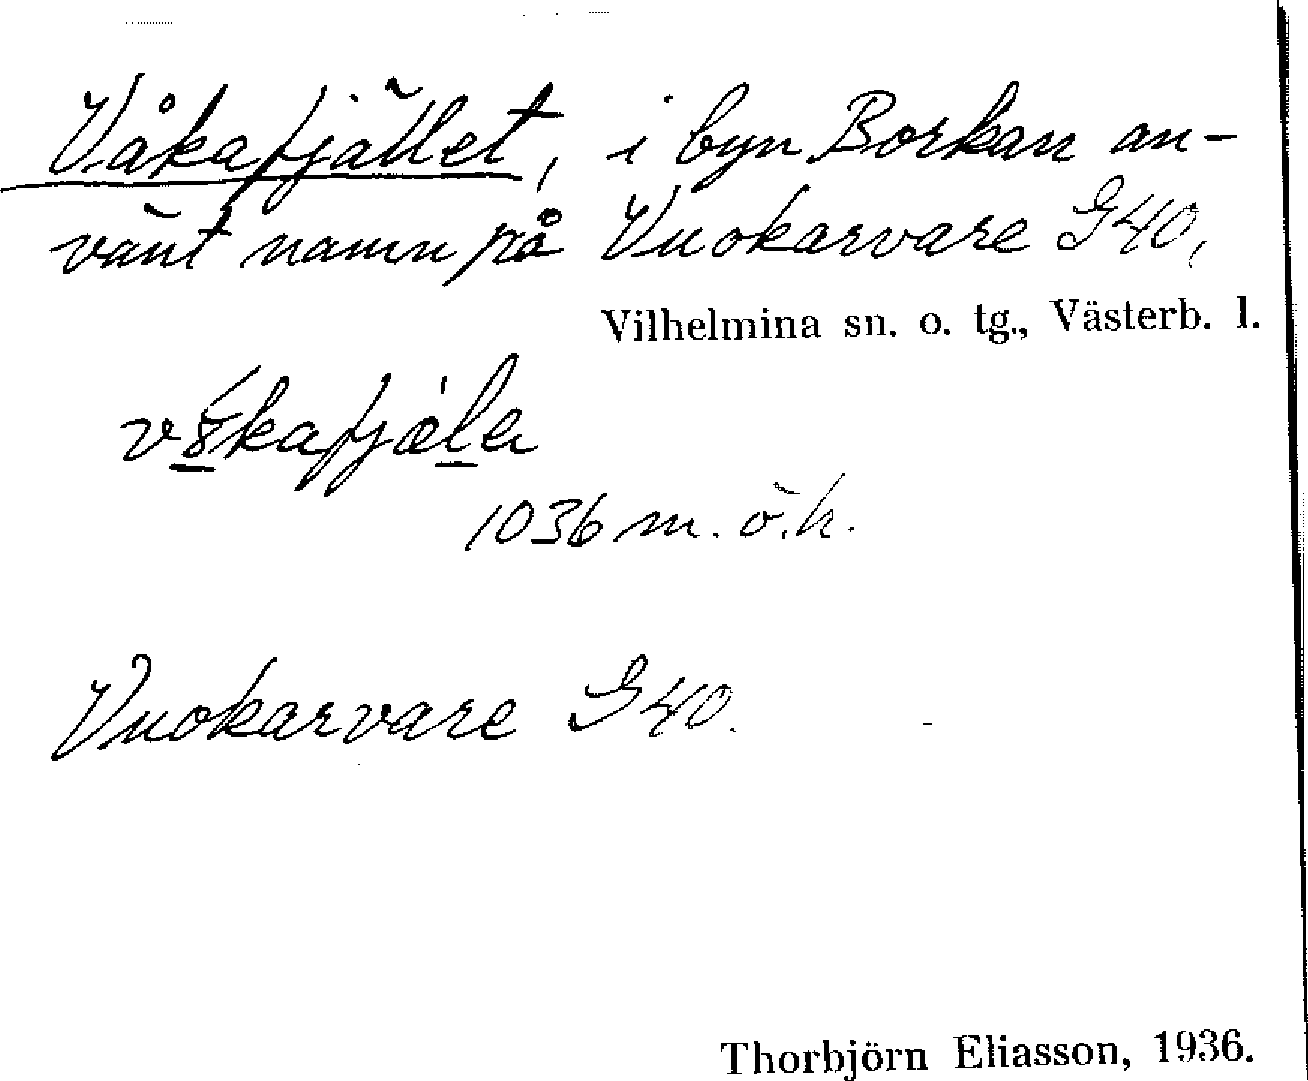 Våkafjället, i byn Borkan an-
vänt namn på Vuokarvare G40,
Vilhelmina sn. o. tg., Västerb. l.
1036 m. ö.h.
Vuokarvare G40.
Thorbjörn Eliasson, 1936.